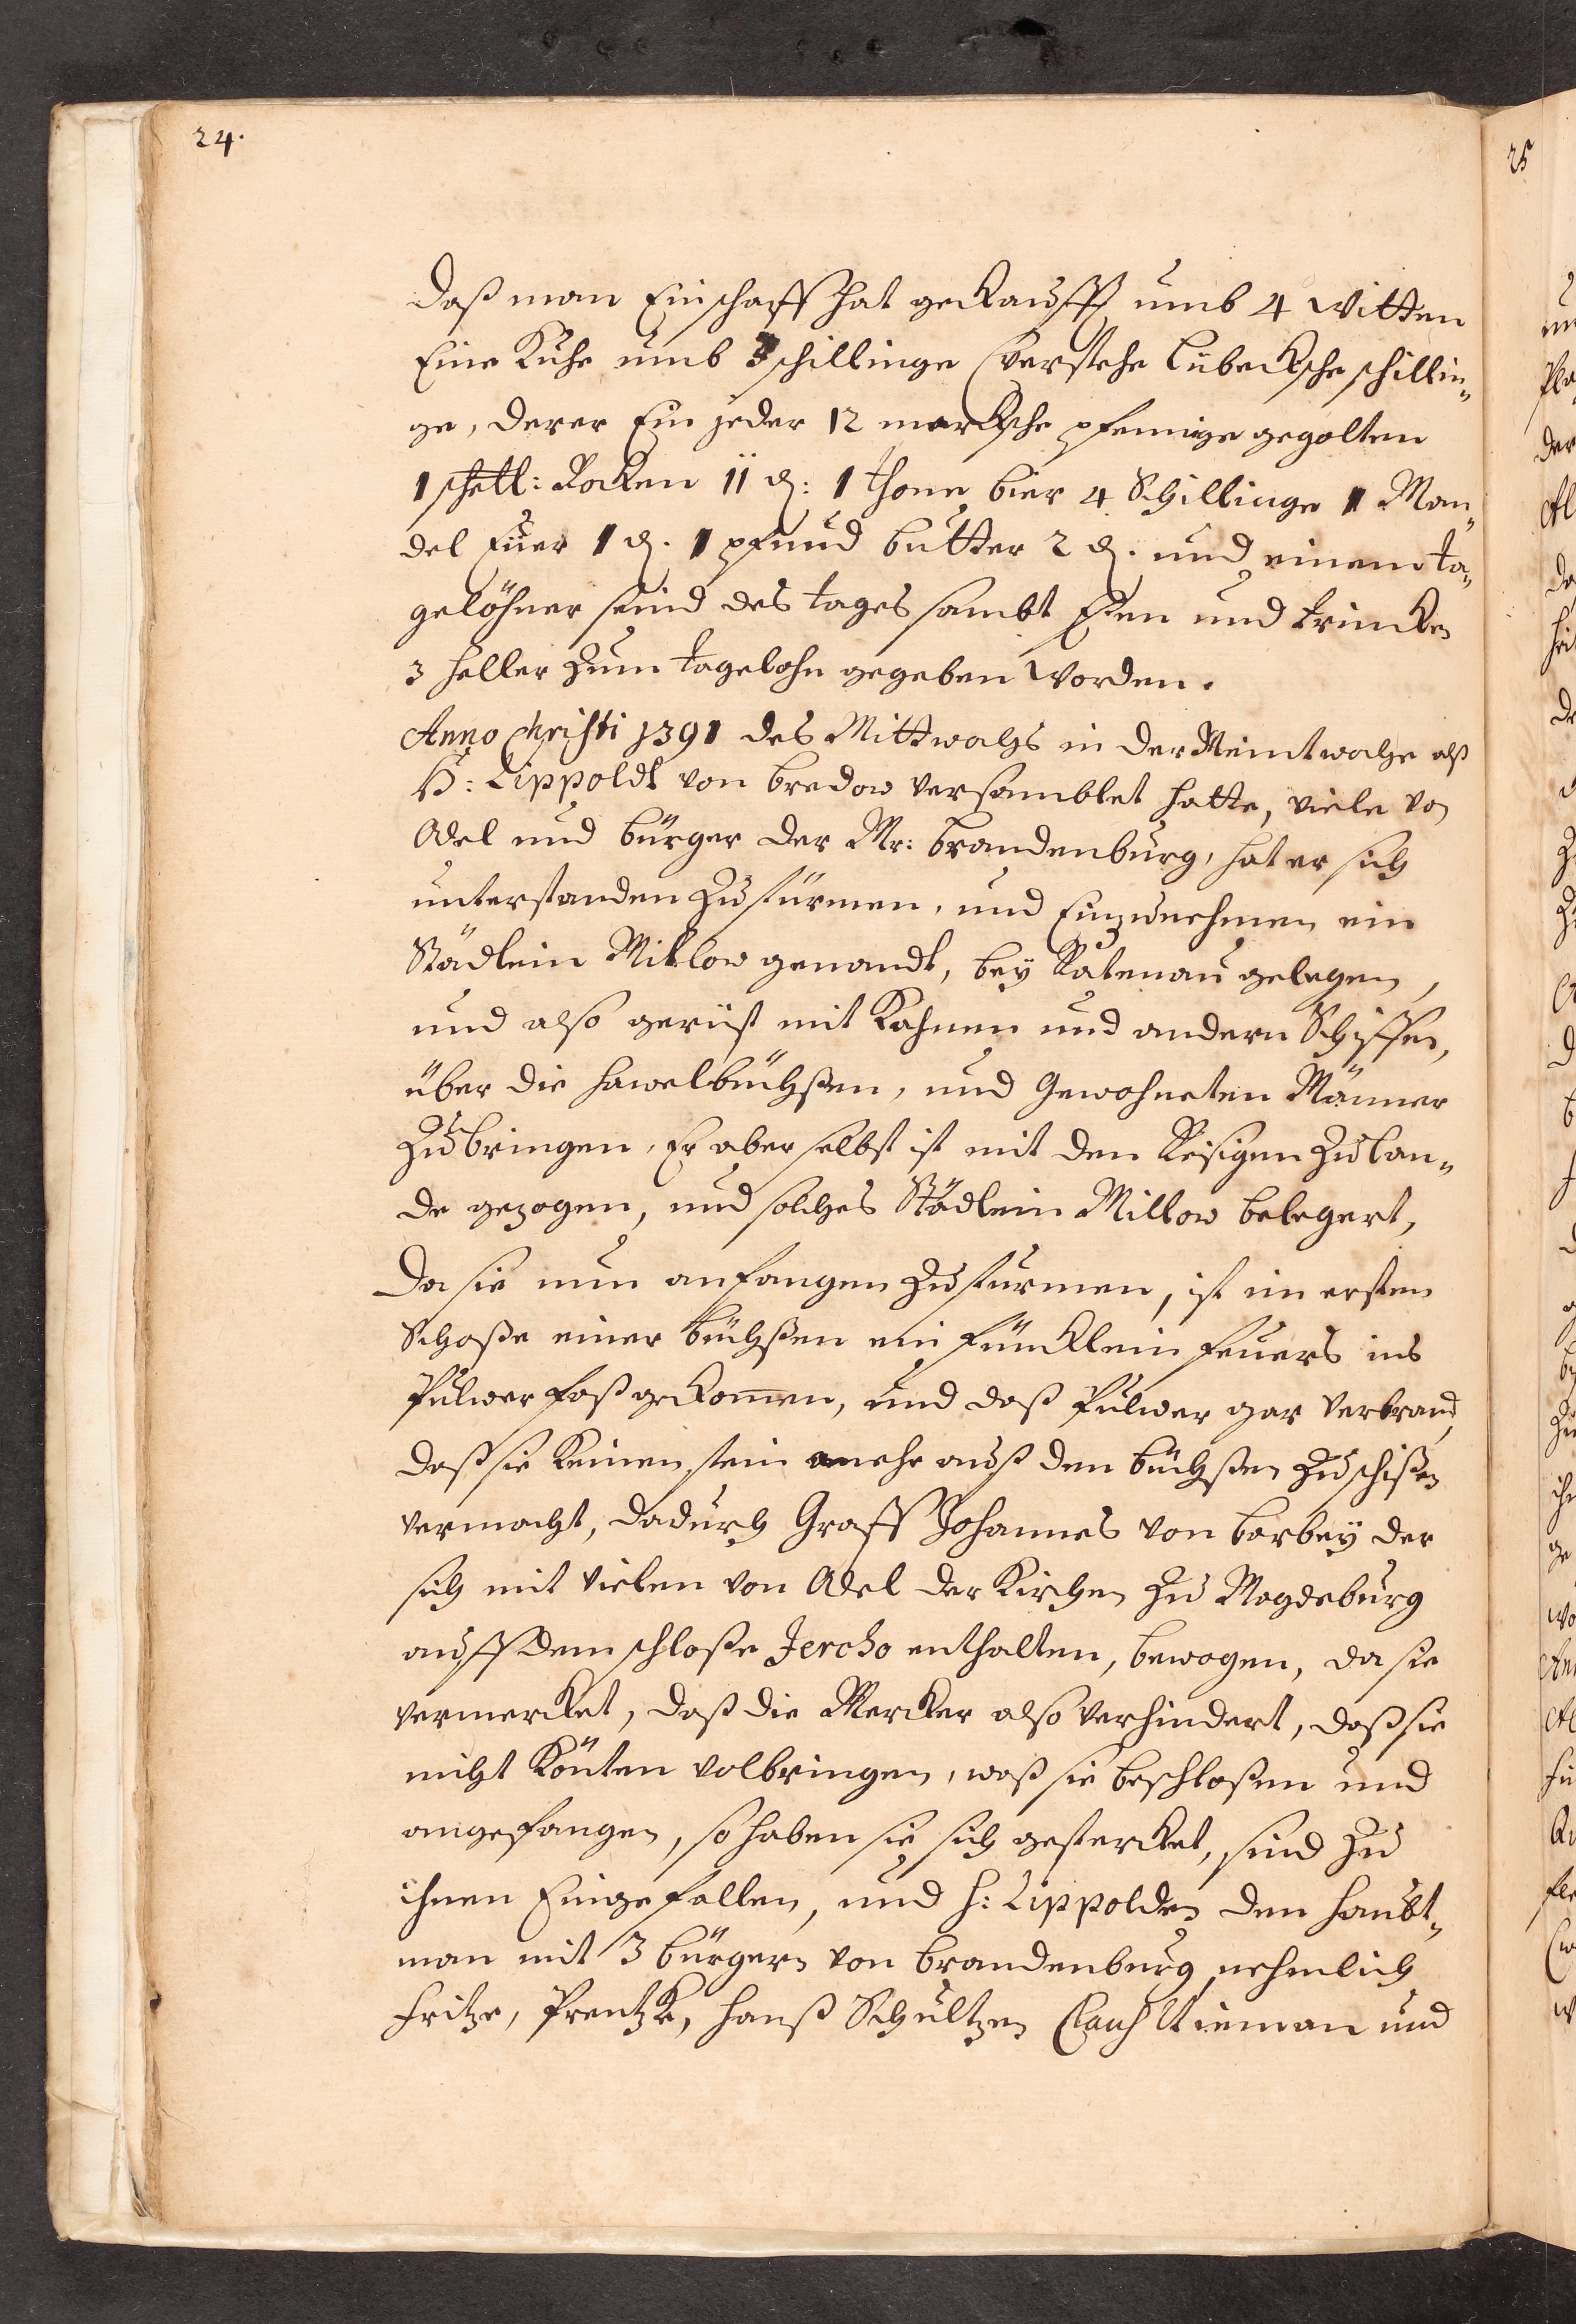 24.
daß man Ein schaff hat gekaufft umb 4 Witten
Eine Kuhe umb 3 schillinge (verstehe Lubecksche schillin„
ge, derer Ein jeder 12 merksche pfennige gegolten
1 scheffl: Rocken 11 ₰: 1 Thone bier 4 Schillinge 1 Man„
del Eüer 1 ₰. 1 pfund butter 2 ₰. und einem ta„
gelöhner seind des tages sambt Eßen und trincken
3 heller zum tagelohn gegeben worden.
Anno Christi 1391 des Mittwochs in der Meintwoche alß
H: Lippoldt von bredow versamblet hatte, viele von
Adel und bürger der Mr: brandenburg, hat er sich
unterstanden zu stürmen, und Einzunehmen ein
Städlein Millow genandt, bey Ratenau gelegen,
und also gerüst mit Kahnen und andern Schiffen,
über die hawel büchßen, und Gewohneten Männer
zu bringen, Er aber selbst ist mit den Reisigen zu lan„
de gezogen, und solches Städlein Millow belegert,
Da sie nun anfangen zu sturmen, ist im ersten
Schoße einer büchßen ein füncklein feuers ins
Pulwer faß gekommen, und daß Pulwer gar verbrand,
daß sie keinen stein mehr auß den büchßen zu schißen
vermocht, dadurch Graff Johannes von barbey der
sich mit vielen von Adel der Kirchen zu Magdeburg
auff dem schloße Jercho enthalten, bewogen, da sie
vermercket, daß die Mercker also verhindert, daß sie
nicht könten volbringen, waß sie beschloßen und
angefangen, so haben sie sich gestercket, sind zu
ihnen Eingefallen, und H: Lippolden den haubt„
man mit 3 bürgern von brandenburg, nehmlich
Fritze, Prentzk, hanß Schultzen Clauß Nieman und
25